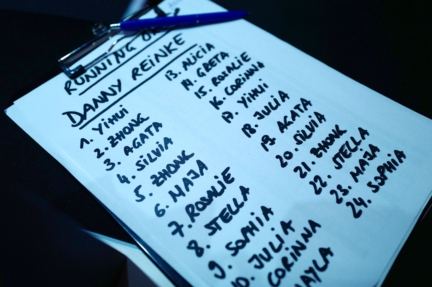 RUNNING O
DANNY REINKE
1. YIHUI
2. ZHONG
3. AGATA
4. SILVIA
5. ZHONG
6. MAJA
7. ROSALIE
8. STELLA
9. SOPHIA
10. JULIA
CORINNA
AYLA
13. ALICIA
14. GRETA
15. ROSALIE
16. CORINNA
17. YIHUI
18. JULIA
19. AGATA
20. SILVIA
21. ZHONG
22. STELLA
23. MAJA
24. SOPHIA